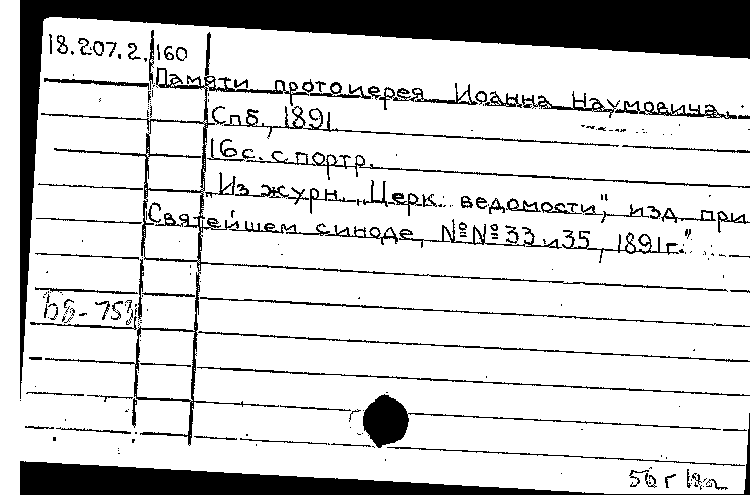 18.207.2.160
Памяти протоиерея Иоанна Наумовича.
Спб., 1891.
16 с. с портр.
"Из журн. „Церк. ведомости", изд. при
Святейшем синоде, №№ 33 и 35, 1891 г."